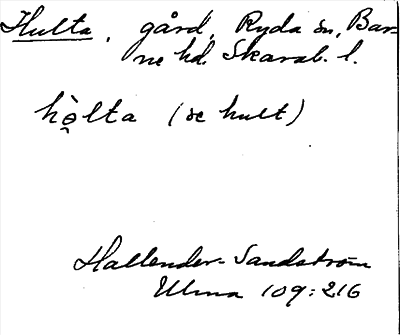 Hulta, gård, Ryda sn, Bar-
ne hd. Skarab. l.
hò̤lta (se hult)
Hallender-Sandström
Ulma 109:216